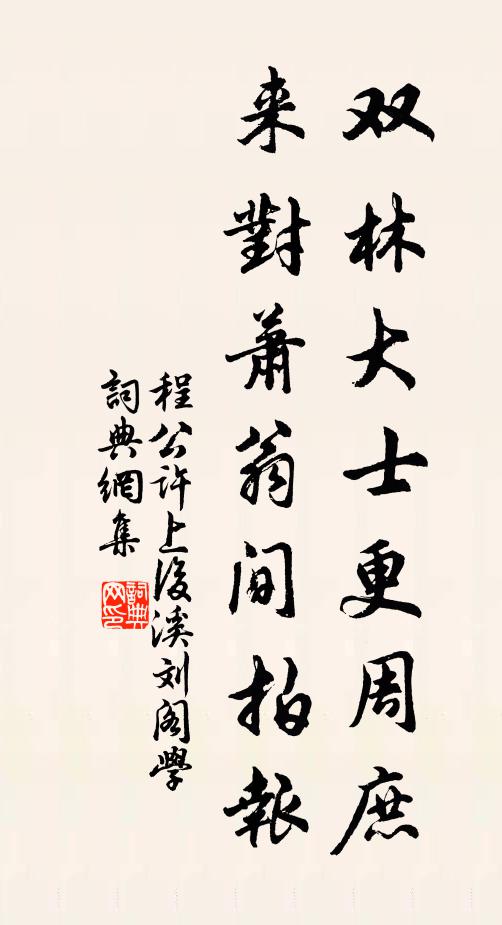 双林大士更周庶
来對萧翁间拍報
程公许上後溪刘阁學
詞典網集
詞典網印